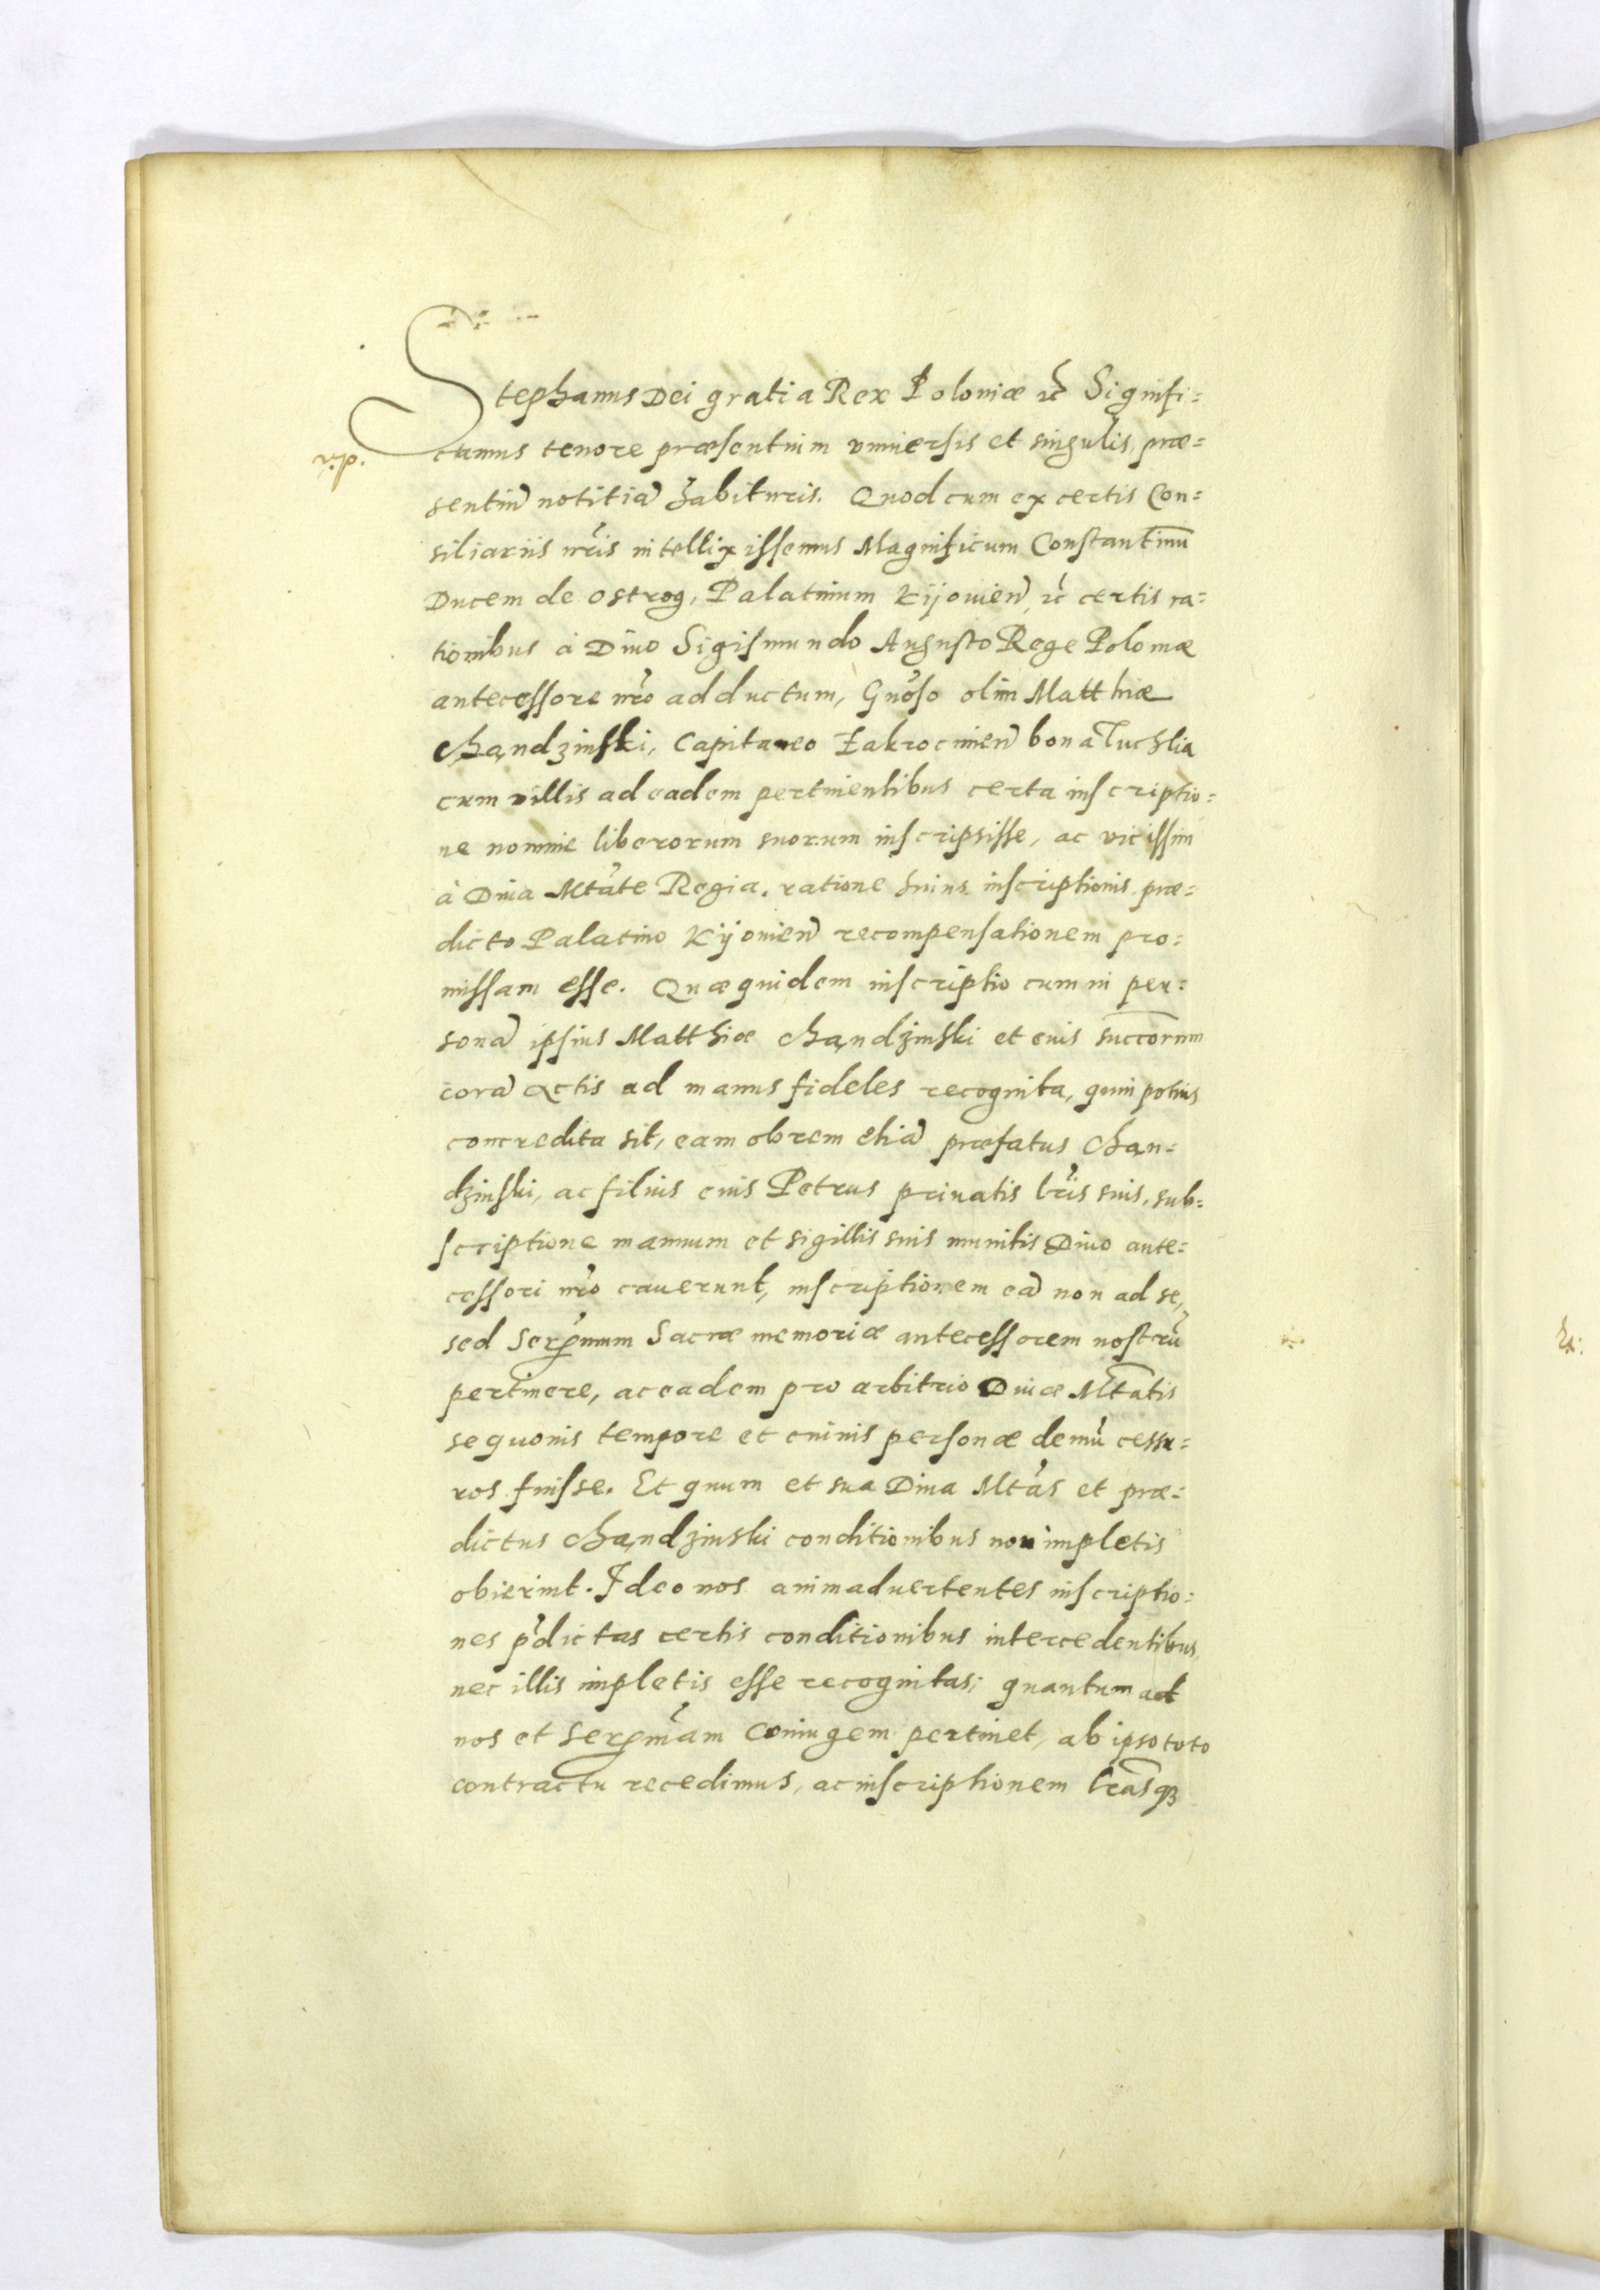 Stephanus Dei gratia Rex Poloniæ etc̃ Signifi=
camus tenore præsentium vniuersis et singulis, præ=
v.p.
sentiũ notitiã habituris. Quod cum ex certis Con=
siliariis nr̃is intellixissemus Magnificum Constantinũ
Ducem de Ostrog, Palatinum Kijouieñ, etc̃ certis ra=
tionibus à Diuo Sigismundo Augusto Rege Poloniæ
antecessore nr̃o adductum, Gñoso olim Matthiæ
Chądzinski, Capitaneo Zakrocimieñ bona Tuchlia
cum villis ad eadem pertinentibus certa inscriptio=
ne nomine liberorum suorum inscripsisse, ac vicissim
à Diua Mtãte Regia, ratione huius inscriptionis præ=
dicto Palatino Kijouieñ recompensationem pro=
missam esse. Quæ quidem inscriptio cum in per=
sonã ipsius Matthiæ Chądzinski et eius succorum
corã actis ad manus fideles recognita, quin potius
concredita sit, eam obrem etiã præfatus Chan=
dzinski, ac filius eius Petrus priuatis lr̃is suis, sub=
scriptione manuum et sigillis suis munitis Diuo ante=
cessori nr̃o cauerunt, inscriptionem eã non ad se,
sed Serẽnmum Sacræ memoriæ antecessorem nostrũ
pertinere, ac eadem pro arbitrio Diuæ Mtãtis
se quouis tempore et cuiuis personæ demũ cessu=
ros fuisse. Et quum et sua Diua Mtãs et præ=
dictus Chądzinski conditionibus non impletis
obierint. Ideo nos animaduertentes inscriptio=
nes p̃dictas certis conditionibus intercedentibus
nec illis impletis esse recognitas; quantum ad
nos et Serẽnmam Coniugem pertinet, ab ipso toto
contractu recedimus, ac inscriptionem lr̃asq3